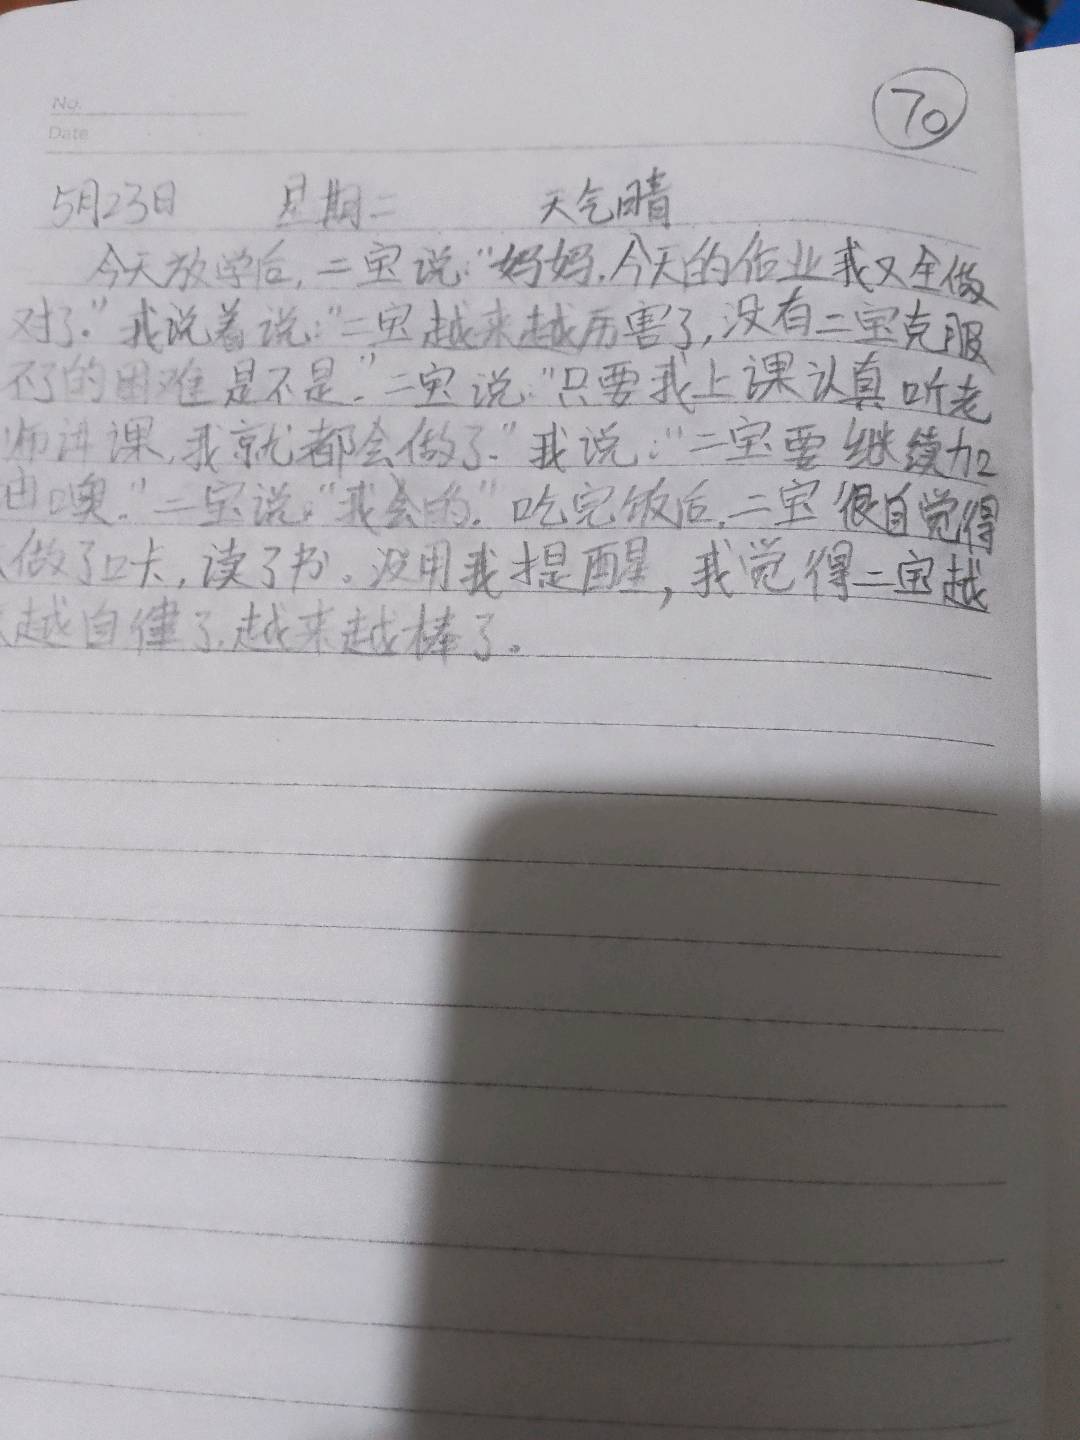 No.
70
Date
5月23日 星期二 天气晴
今天放学后,二宝说:“妈妈.今天的作业我又全做
对了.”我说着说:“二宝越来越厉害了,没有二宝克服
不了的困难是不是.”二宝说:“只要我上课认真听老
师讲课,我就都会做了.”我说:“二宝要继续加
油噢.”二宝说:“我会的.”吃完饭后,二宝很自觉得
做了口卡,读了书。没用我提醒,我觉得二宝越
越自律了.越来越棒了。